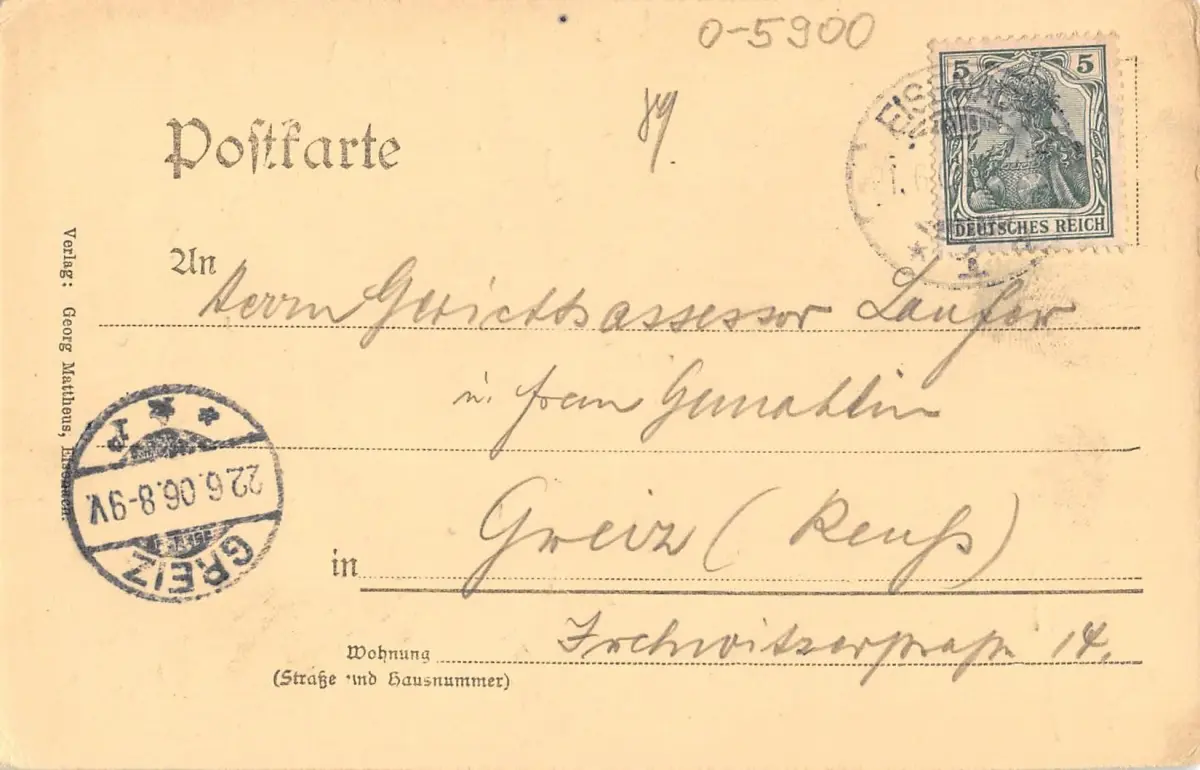 0-5900
89.
5 5
DEUTSCHES REICH
1.6
* 1
Postkarte
An
Herrn Gerichtsassessor Laufer
u. frau Gemahlin
in Greiz (Reuß)
Wohnung
(Straße und Hausnummer)
Irchwitzerstraße 14.
Verlag: Georg Mattheus, Eisenach.
GREIZ
22.6.06.8-9V.
* * P